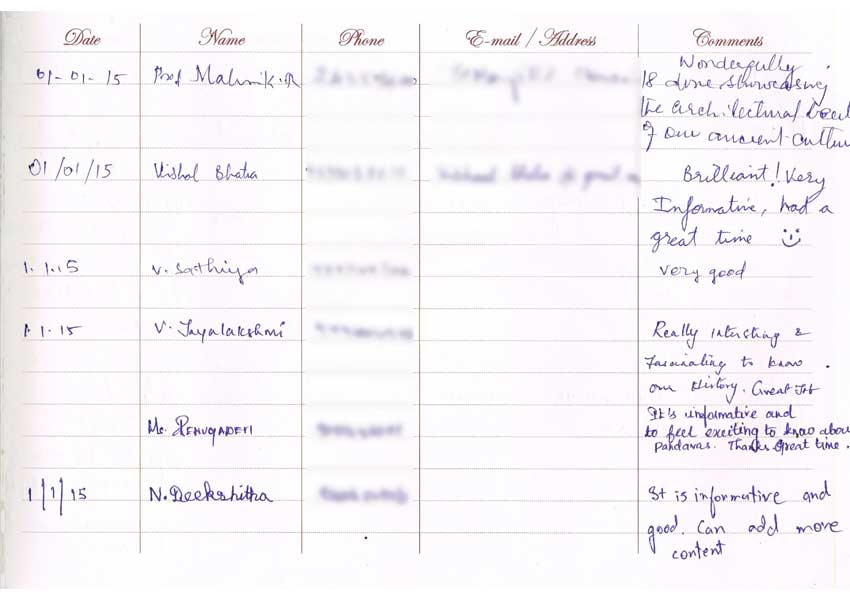 Date Name Phone E-mail / Address Comments
01-01-15 Prof Wonderfully
showcasing
the architectural
of our ancient
01/01/15 Vishal Bhatia Brilliant! Very
Informative, had a
great time
1.1.15 V. Sathiya very good
1.1.15 V. Jayalakshmi Really intersting &
Fascinating to know
our History. Great Job
Ms. It's informative and
to feel exciting to know about
Pandavas. Thanks Great time.
1/1/15 N. Deekshitha It is informative and
good. Can add more
content